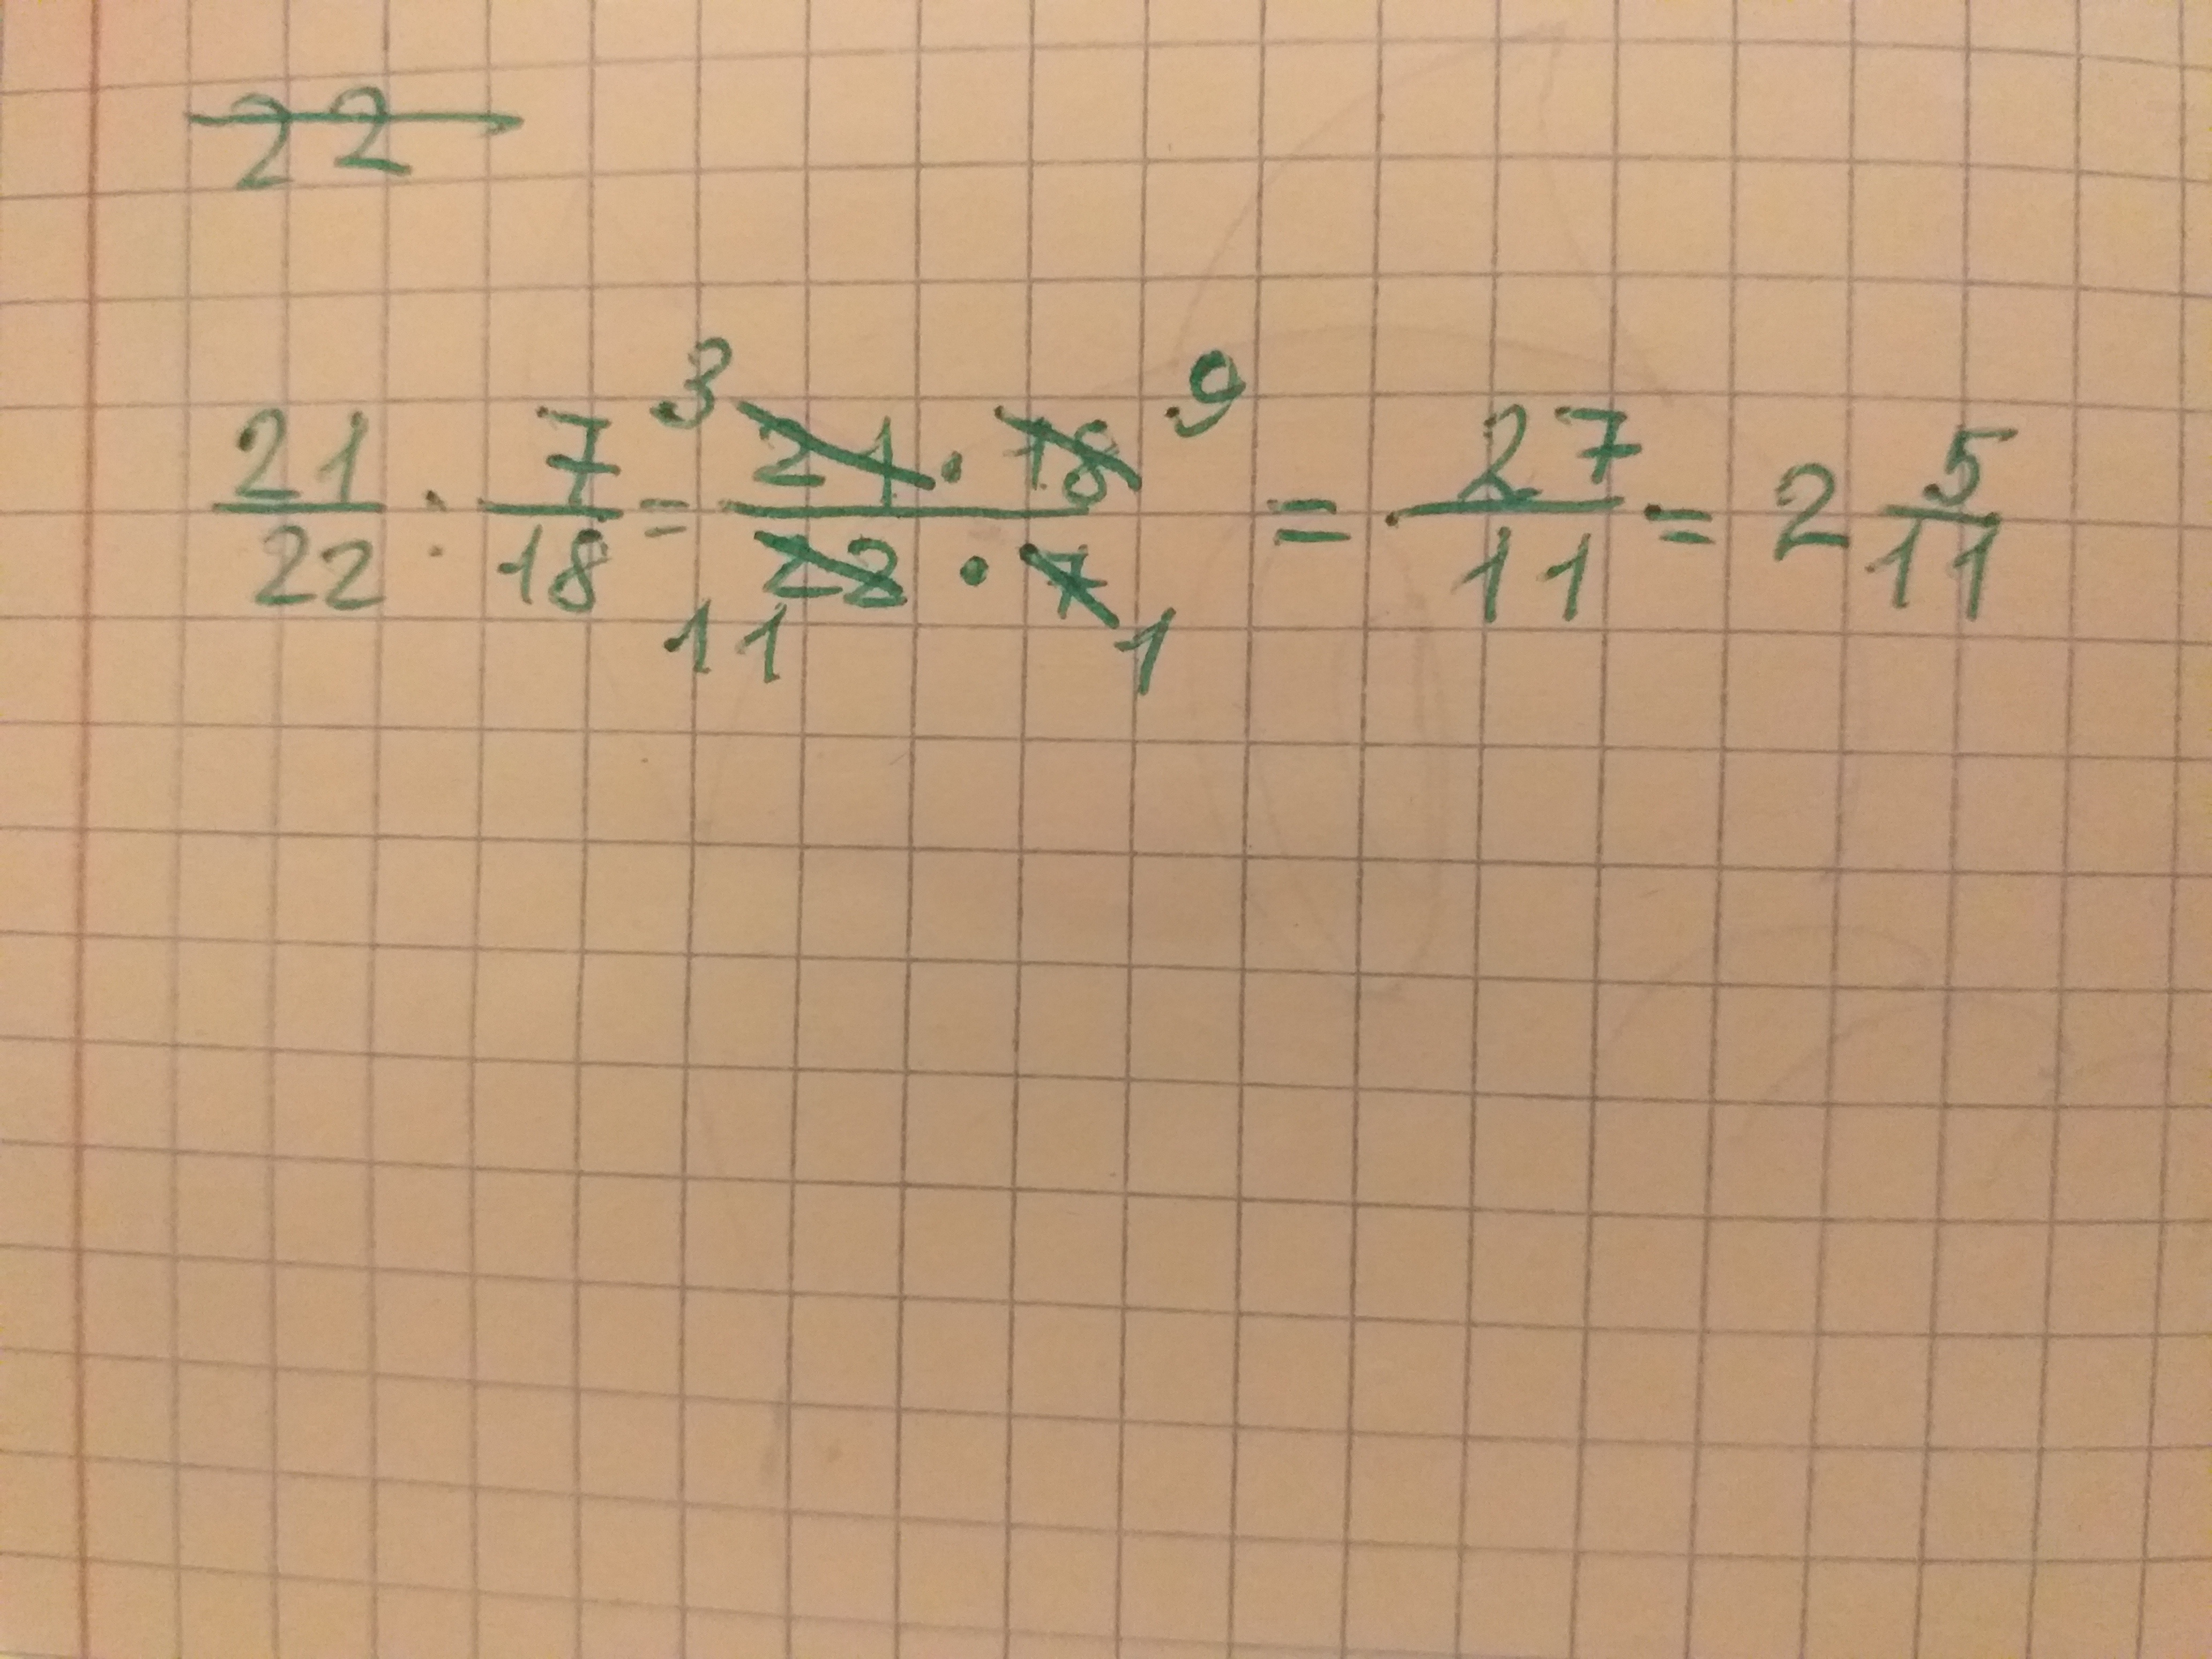 22
21/22 : 7/18 = 3 21 · 18 9 / 11 22 · 7 1 = 27/11 = 2 5/11